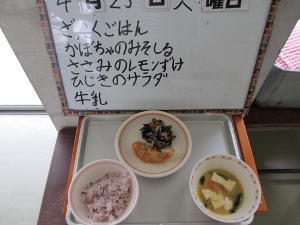 4月23日火曜日
ざっこくごはん
かぼちゃのみそしる
ささみのレモンずけ
ひじきのサラダ
牛乳